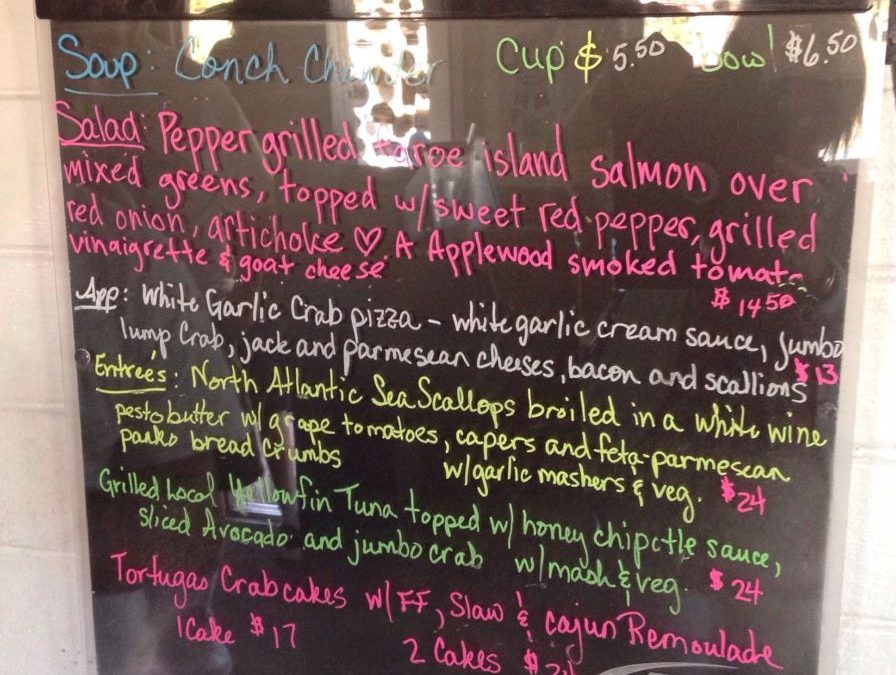 Soup: Conch Chowder Cup $5.50 bowl $6.50
Salad: Pepper grilled faroe island salmon over
mixed greens, topped w/sweet red pepper, grilled
red onion, artichoke ♡. A Applewood smoked tomato
vinaigrette & goat cheese $14.50
App: White Garlic Crab pizza - white garlic cream sauce, jumbo
lump Crab, jack and parmesean cheeses, bacon and scallions $13
Entree's: North Atlantic Sea Scallops broiled in a white wine
pesto butter w/ grape tomatoes, capers and feta-parmesean
panko bread crumbs w/garlic mashers & veg. $24
Grilled Local Yellowfin Tuna topped w/ honey chipotle sauce,
sliced Avocado and jumbo crab w/mash & veg. $24
Tortugas Crabcakes w/FF, Slaw & cajun Remoulade
1 Cake $17 2 Cakes